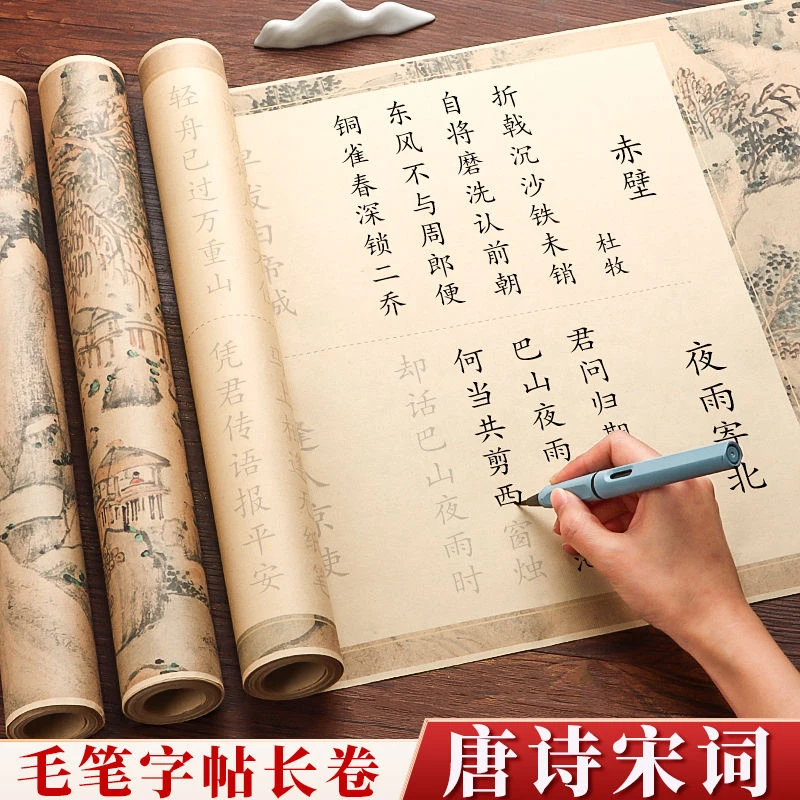 赤壁
杜牧
折戟沉沙铁未销
自将磨洗认前朝
东风不与周郎便
铜雀春深锁二乔
夜雨寄北
君问归期
巴山夜雨
何当共剪西窗烛
却话巴山夜雨时
白帝城
轻舟已过万重山
凭君传语报平安
毛笔字帖长卷
唐诗宋词